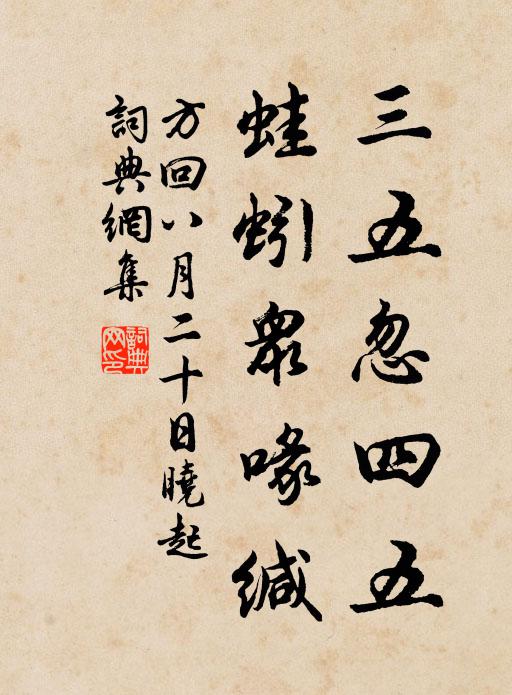 三五忽四五
蛙蚓衆喙緘
方回八月二十日曉起
詞典網集
詞典網印